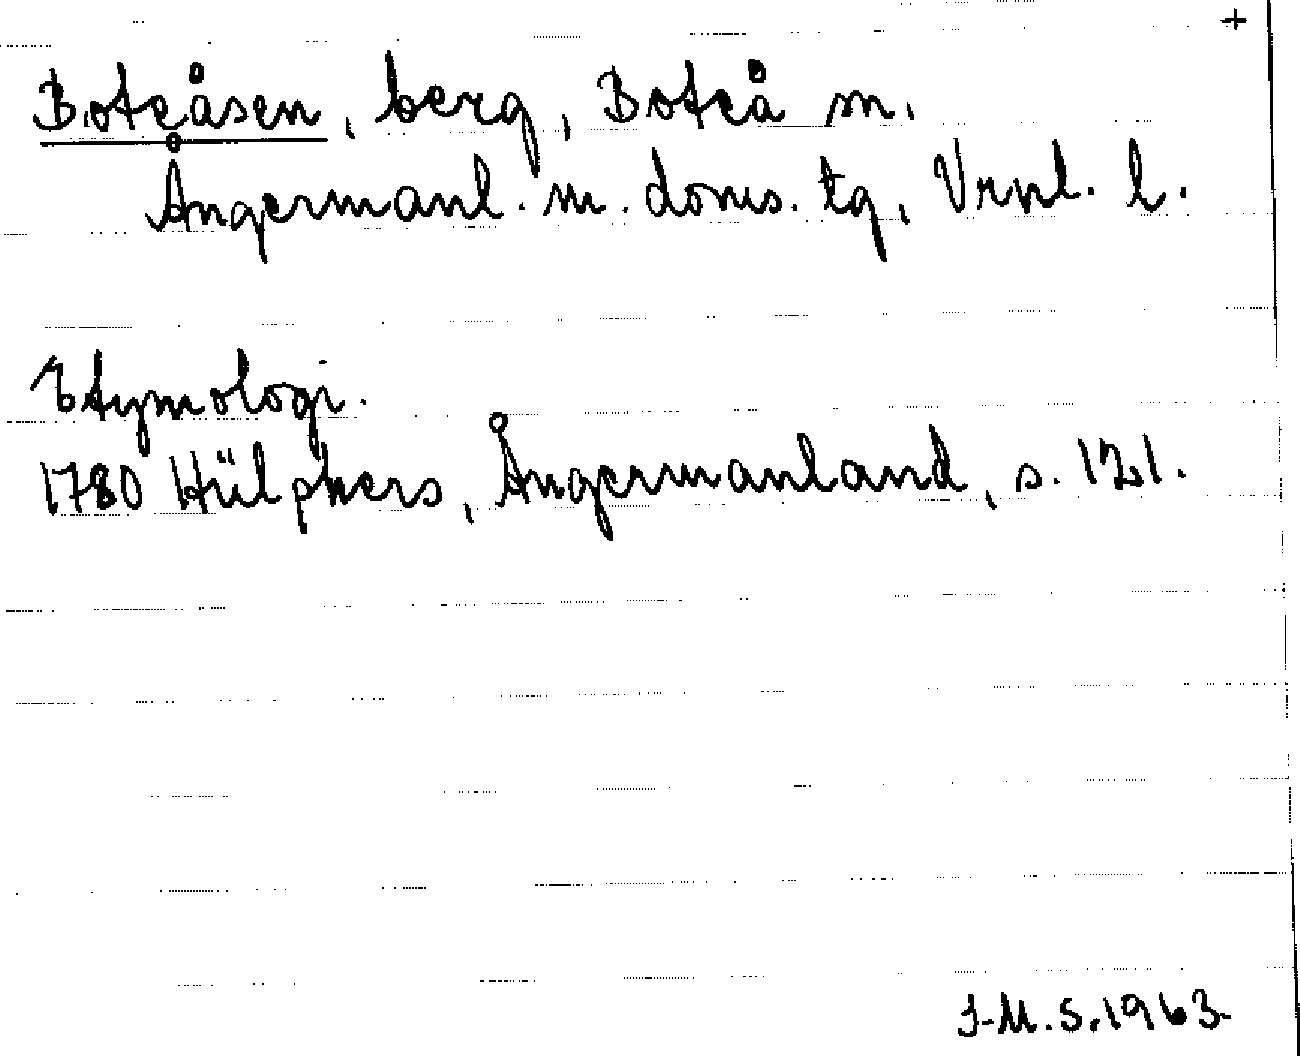 +
Boteåsen, berg, Boteå sn.
Ångermanl. m. doms. tg, Vrnl. l.
Etymologi.
1780 Hülphers, Ångermanland, s. 121.
J-M.S.1963